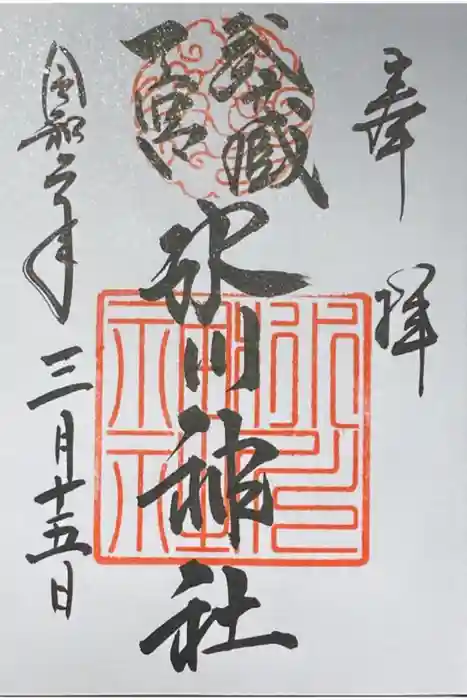 奉拝
武蔵
一宮
氷川神社
令和六年三月十五日
氷川神社